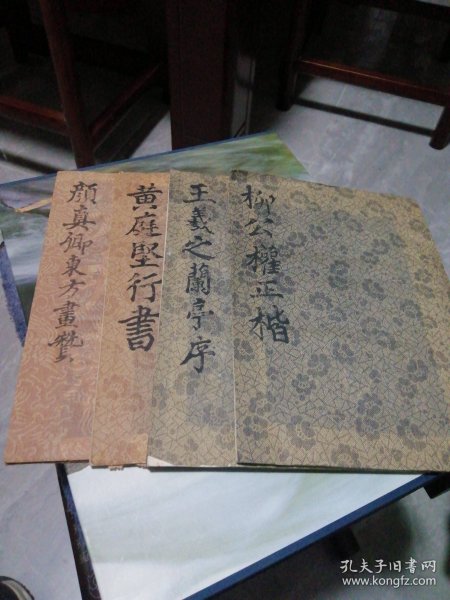 顏真卿東方畫贊
黄庭堅行書
王羲之蘭亭序
柳公權正楷
孔夫子旧书网
www.kongfz.com